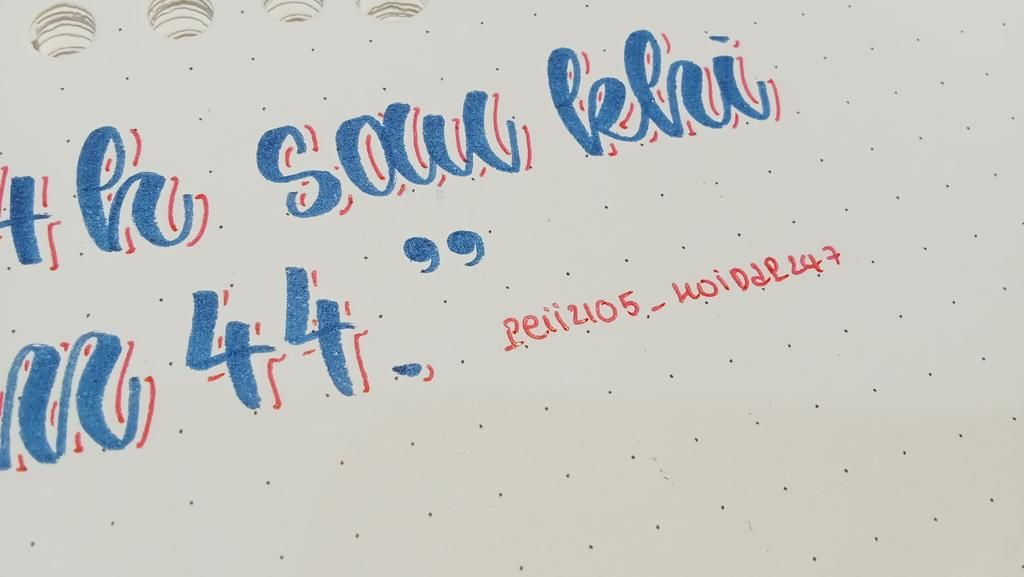 4h sau khi
m 44".
peii2105_hoidap247